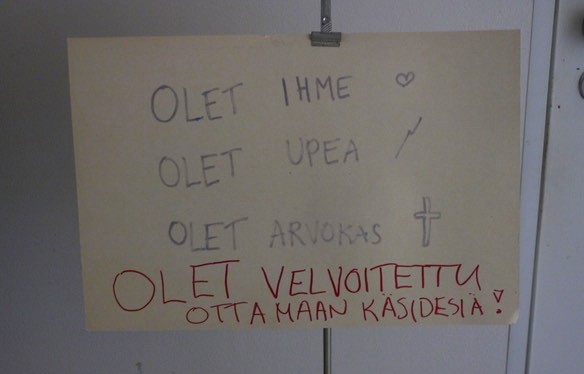 OLET IHME ♡
OLET UPEA
OLET ARVOKAS
OLET VELVOITETTU
OTTAMAAN KÄSIDESIÄ!